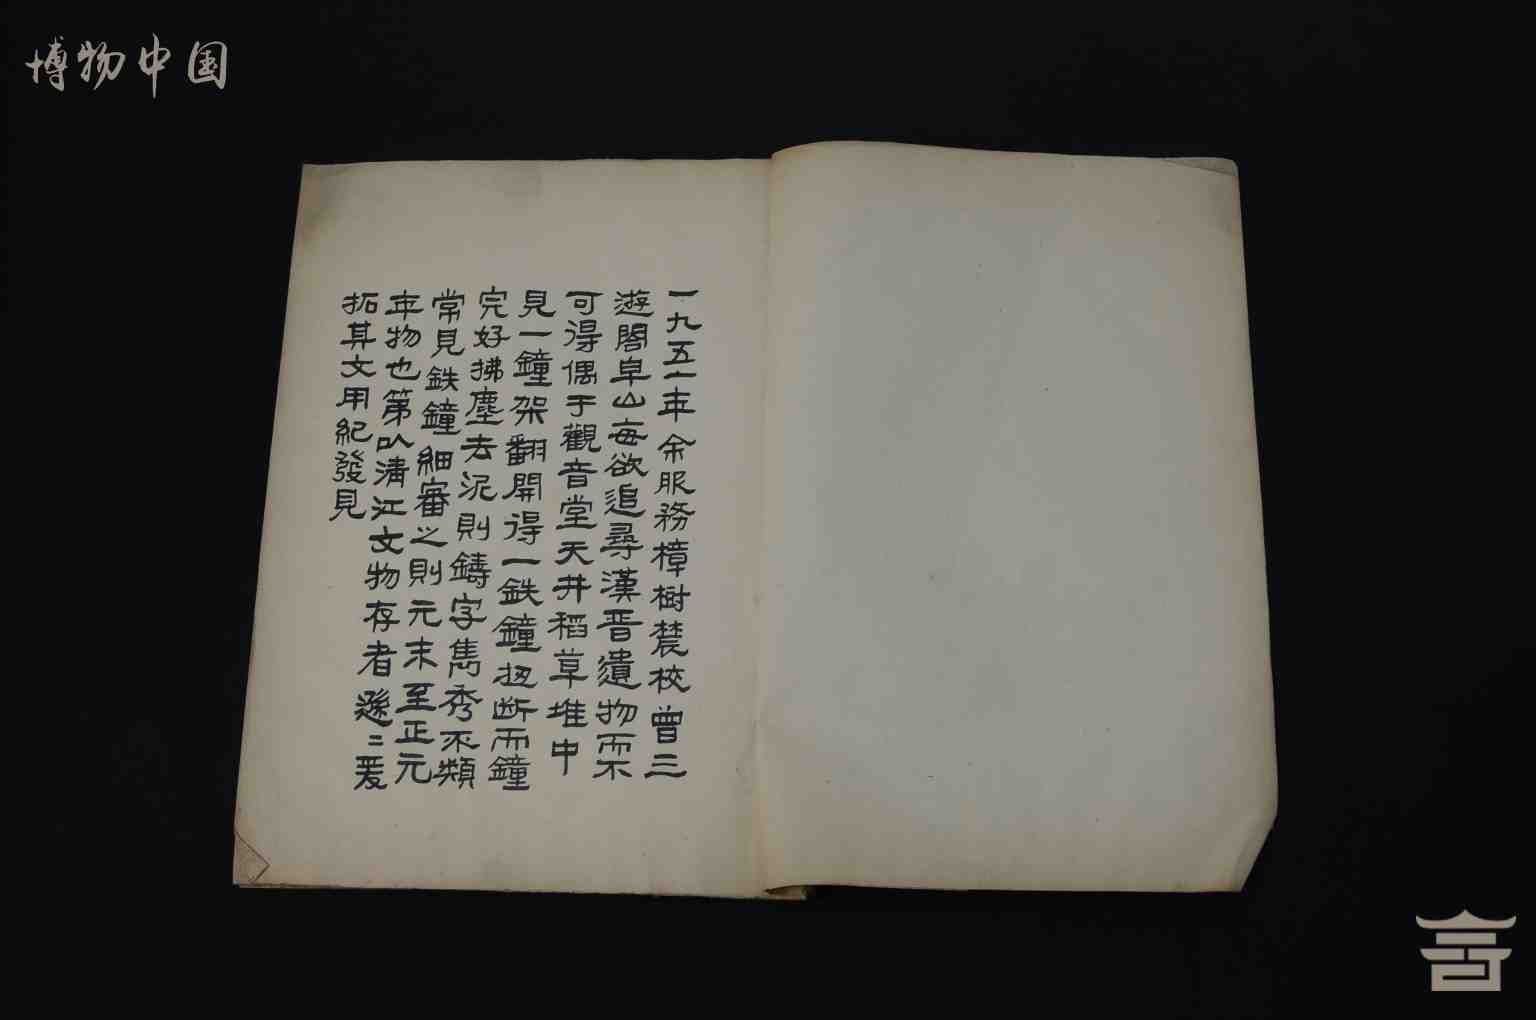 博物中国
一九五一年余服務樟樹農校曾三
遊閤皁山每欲追尋漢晋遺物而不
可得偶于觀音堂天井稻草堆中
見一鐘架翻開得一鉄鐘扭断而鐘
完好拂塵去泥則鑄字雋秀不類
常見鉄鐘細審之則元末至正元
年物也第以清江文物存者遜〻爰
拓其文用紀發見